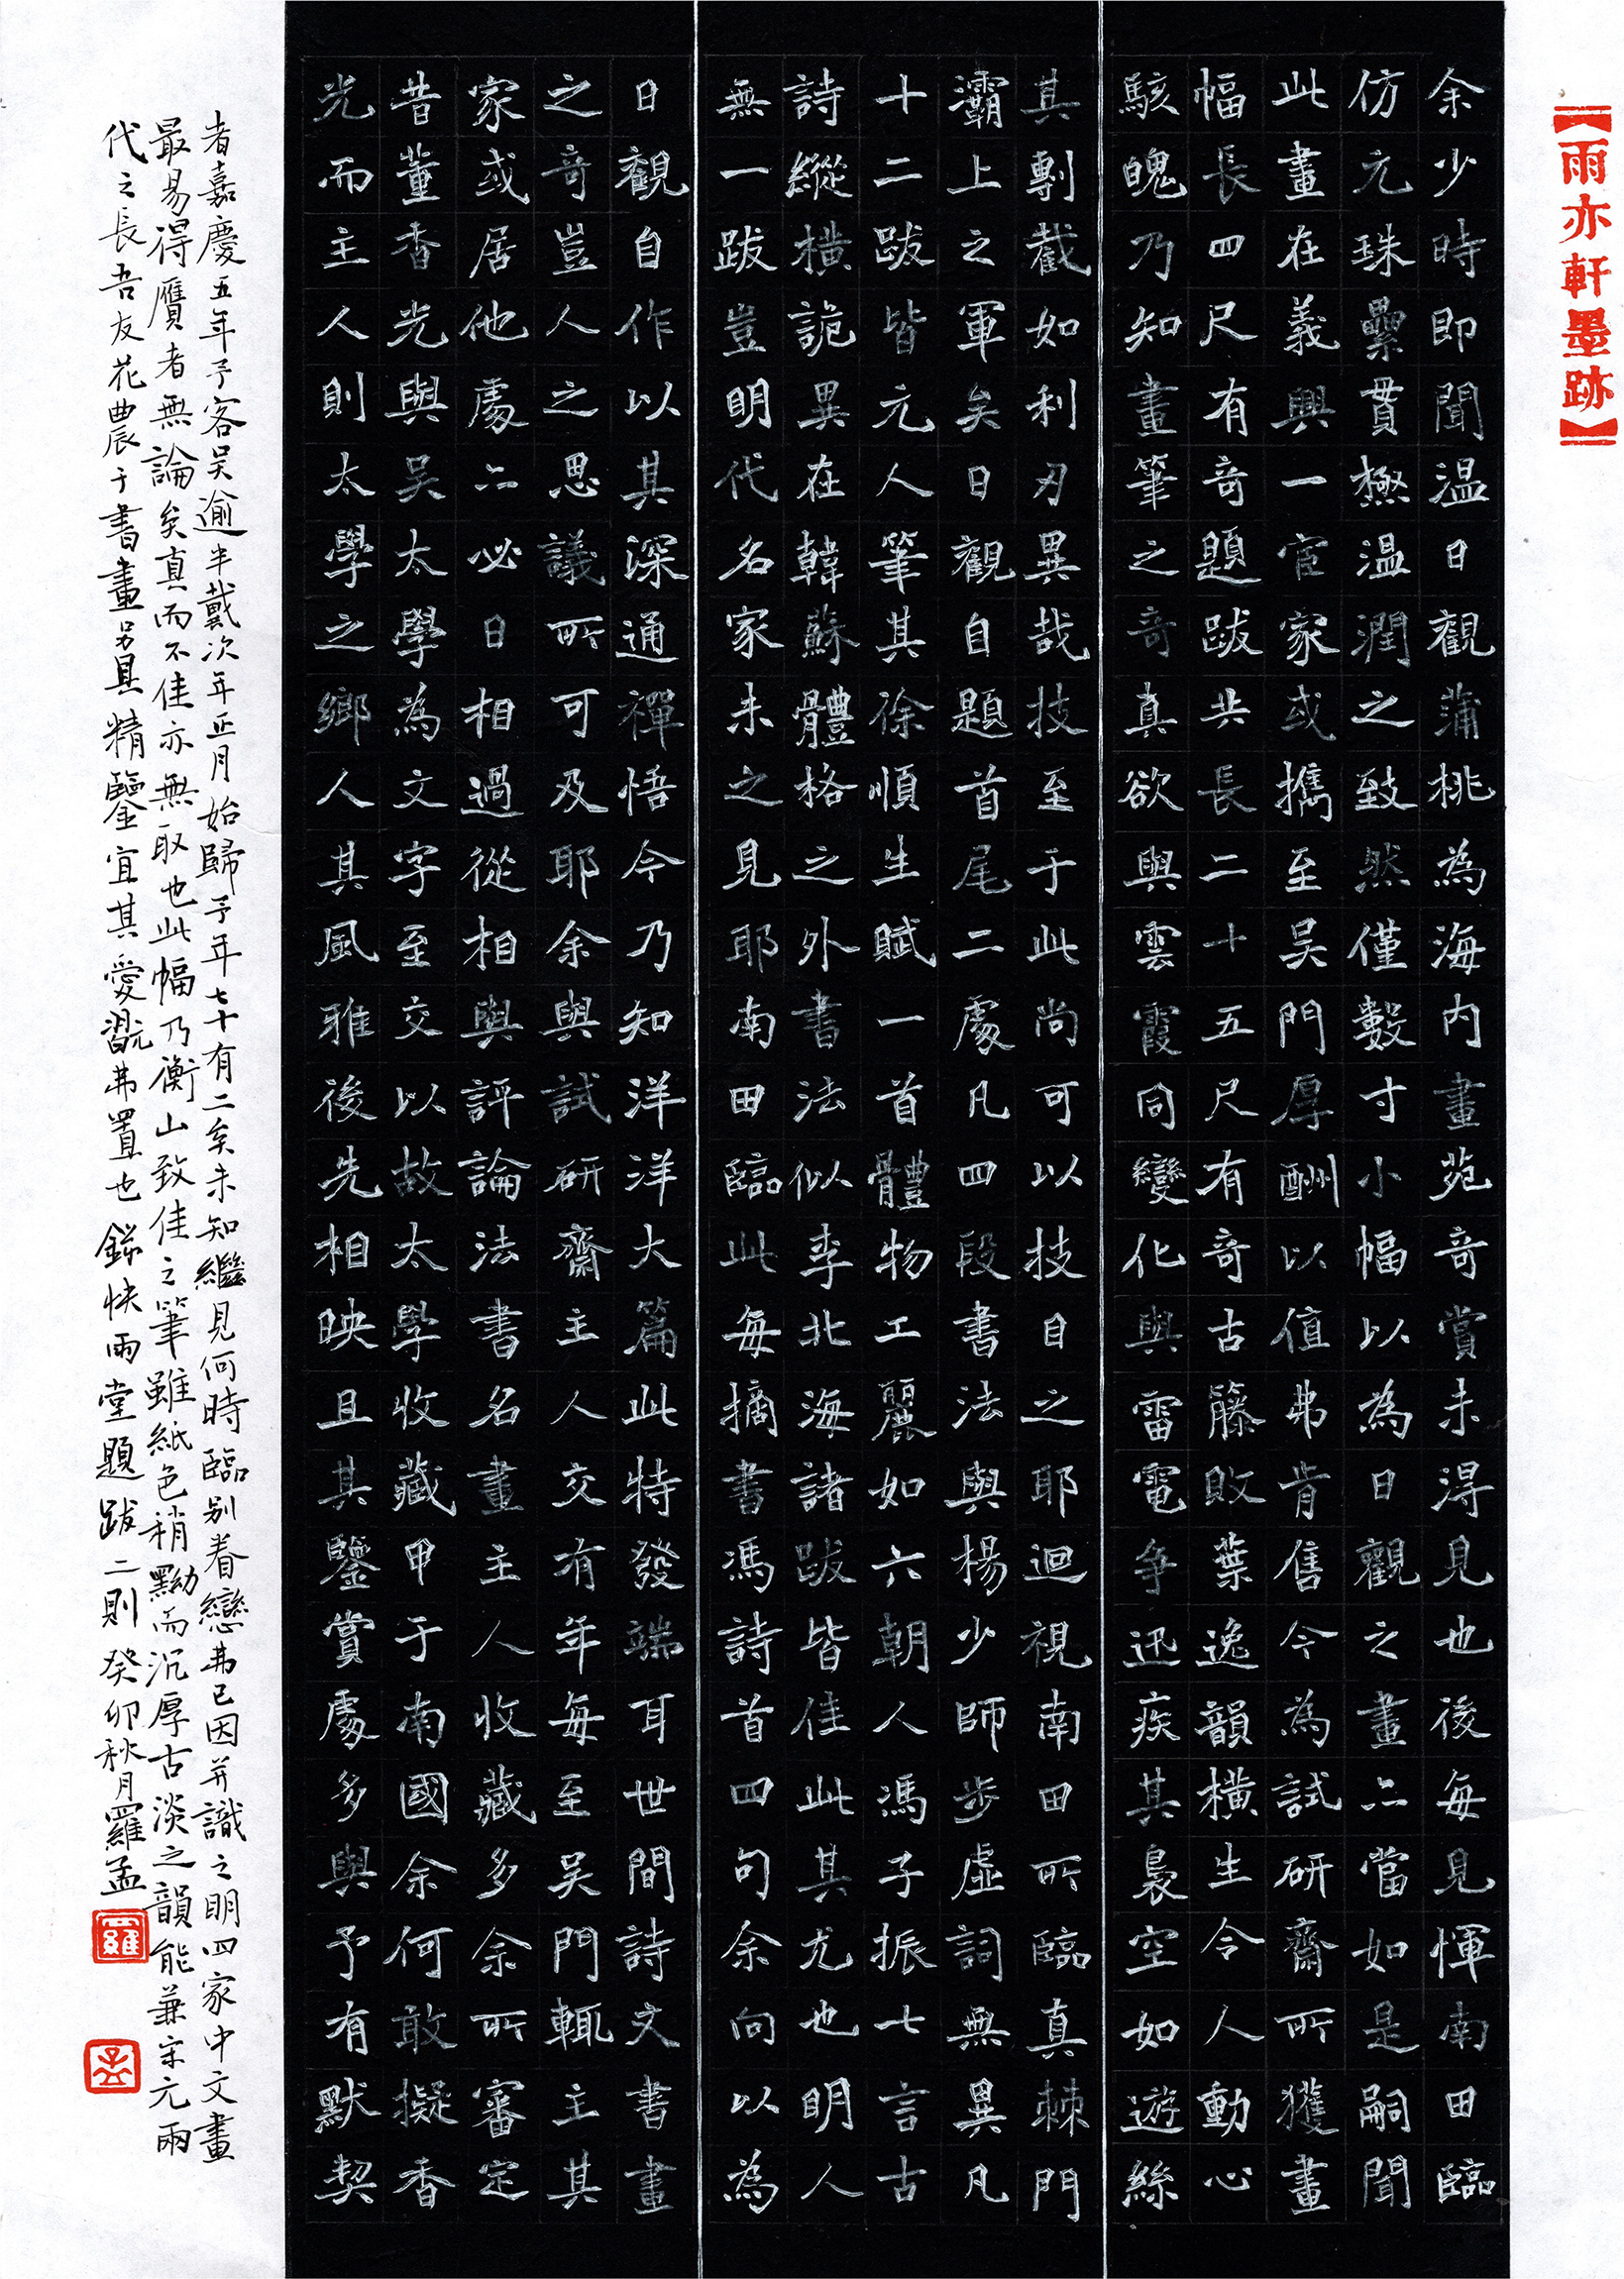 【雨亦軒墨跡】
余少時即聞温日觀蒲桃為海内畫苑奇賞未得見也後每見惲南田臨
仿元珠纍貫極温潤之致然僅數寸小幅以為日觀之畫亦當如是嗣聞
此畫在義興一宦家或攜至吴門厚酬以值弗肯售今為試研齋所獲畫
幅長四尺有奇題跋共長二十五尺有奇古籐敗葉逸韻橫生令人動心
駭魄乃知畫筆之奇真欲與雲霞同變化與雷電争迅疾其裊空如遊絲
其剸截如利刃異哉技至于此尚可以技目之耶迴視南田所臨真棘門
灞上之軍矣日觀自題首尾二處凡四段書法與楊少師步虛詞無異凡
十二跋皆元人筆其徐順生賦一首體物工麗如六朝人馮子振七言古
詩縱橫詭異在韓蘇體格之外書法似李北海諸跋皆佳此其尤也明人
無一跋豈明代名家未之見耶南田臨此每摘書馮詩首四句余向以為
日觀自作以其深通禪悟今乃知洋洋大篇此特發端耳世間詩文書畫
之奇豈人之思議所可及耶余與試研齋主人交有年每至吴門輒主其
家或居他處亦必日相過從相與評論法書名畫主人收藏多余所審定
昔董香光與吴太學為文字至交以故太學收藏甲于南國余何敢擬香
光而主人則太學之鄉人其風雅後先相映且其鑒賞處多與予有默契
者嘉慶五年予客吴逾半載次年正月始歸予年七十有二矣未知繼見何時臨别眷戀弗已因并識之明四家中文畫
最易得贗者無論矣真而不佳亦無取也此幅乃衡山致佳之筆雖紙色稍黝而沉厚古淡之韻能兼宋元兩
代之長吾友花農于書畫另具精鑒宜其愛翫弗置也 錄快雨堂題跋二則癸卯秋月羅孟
羅
孟